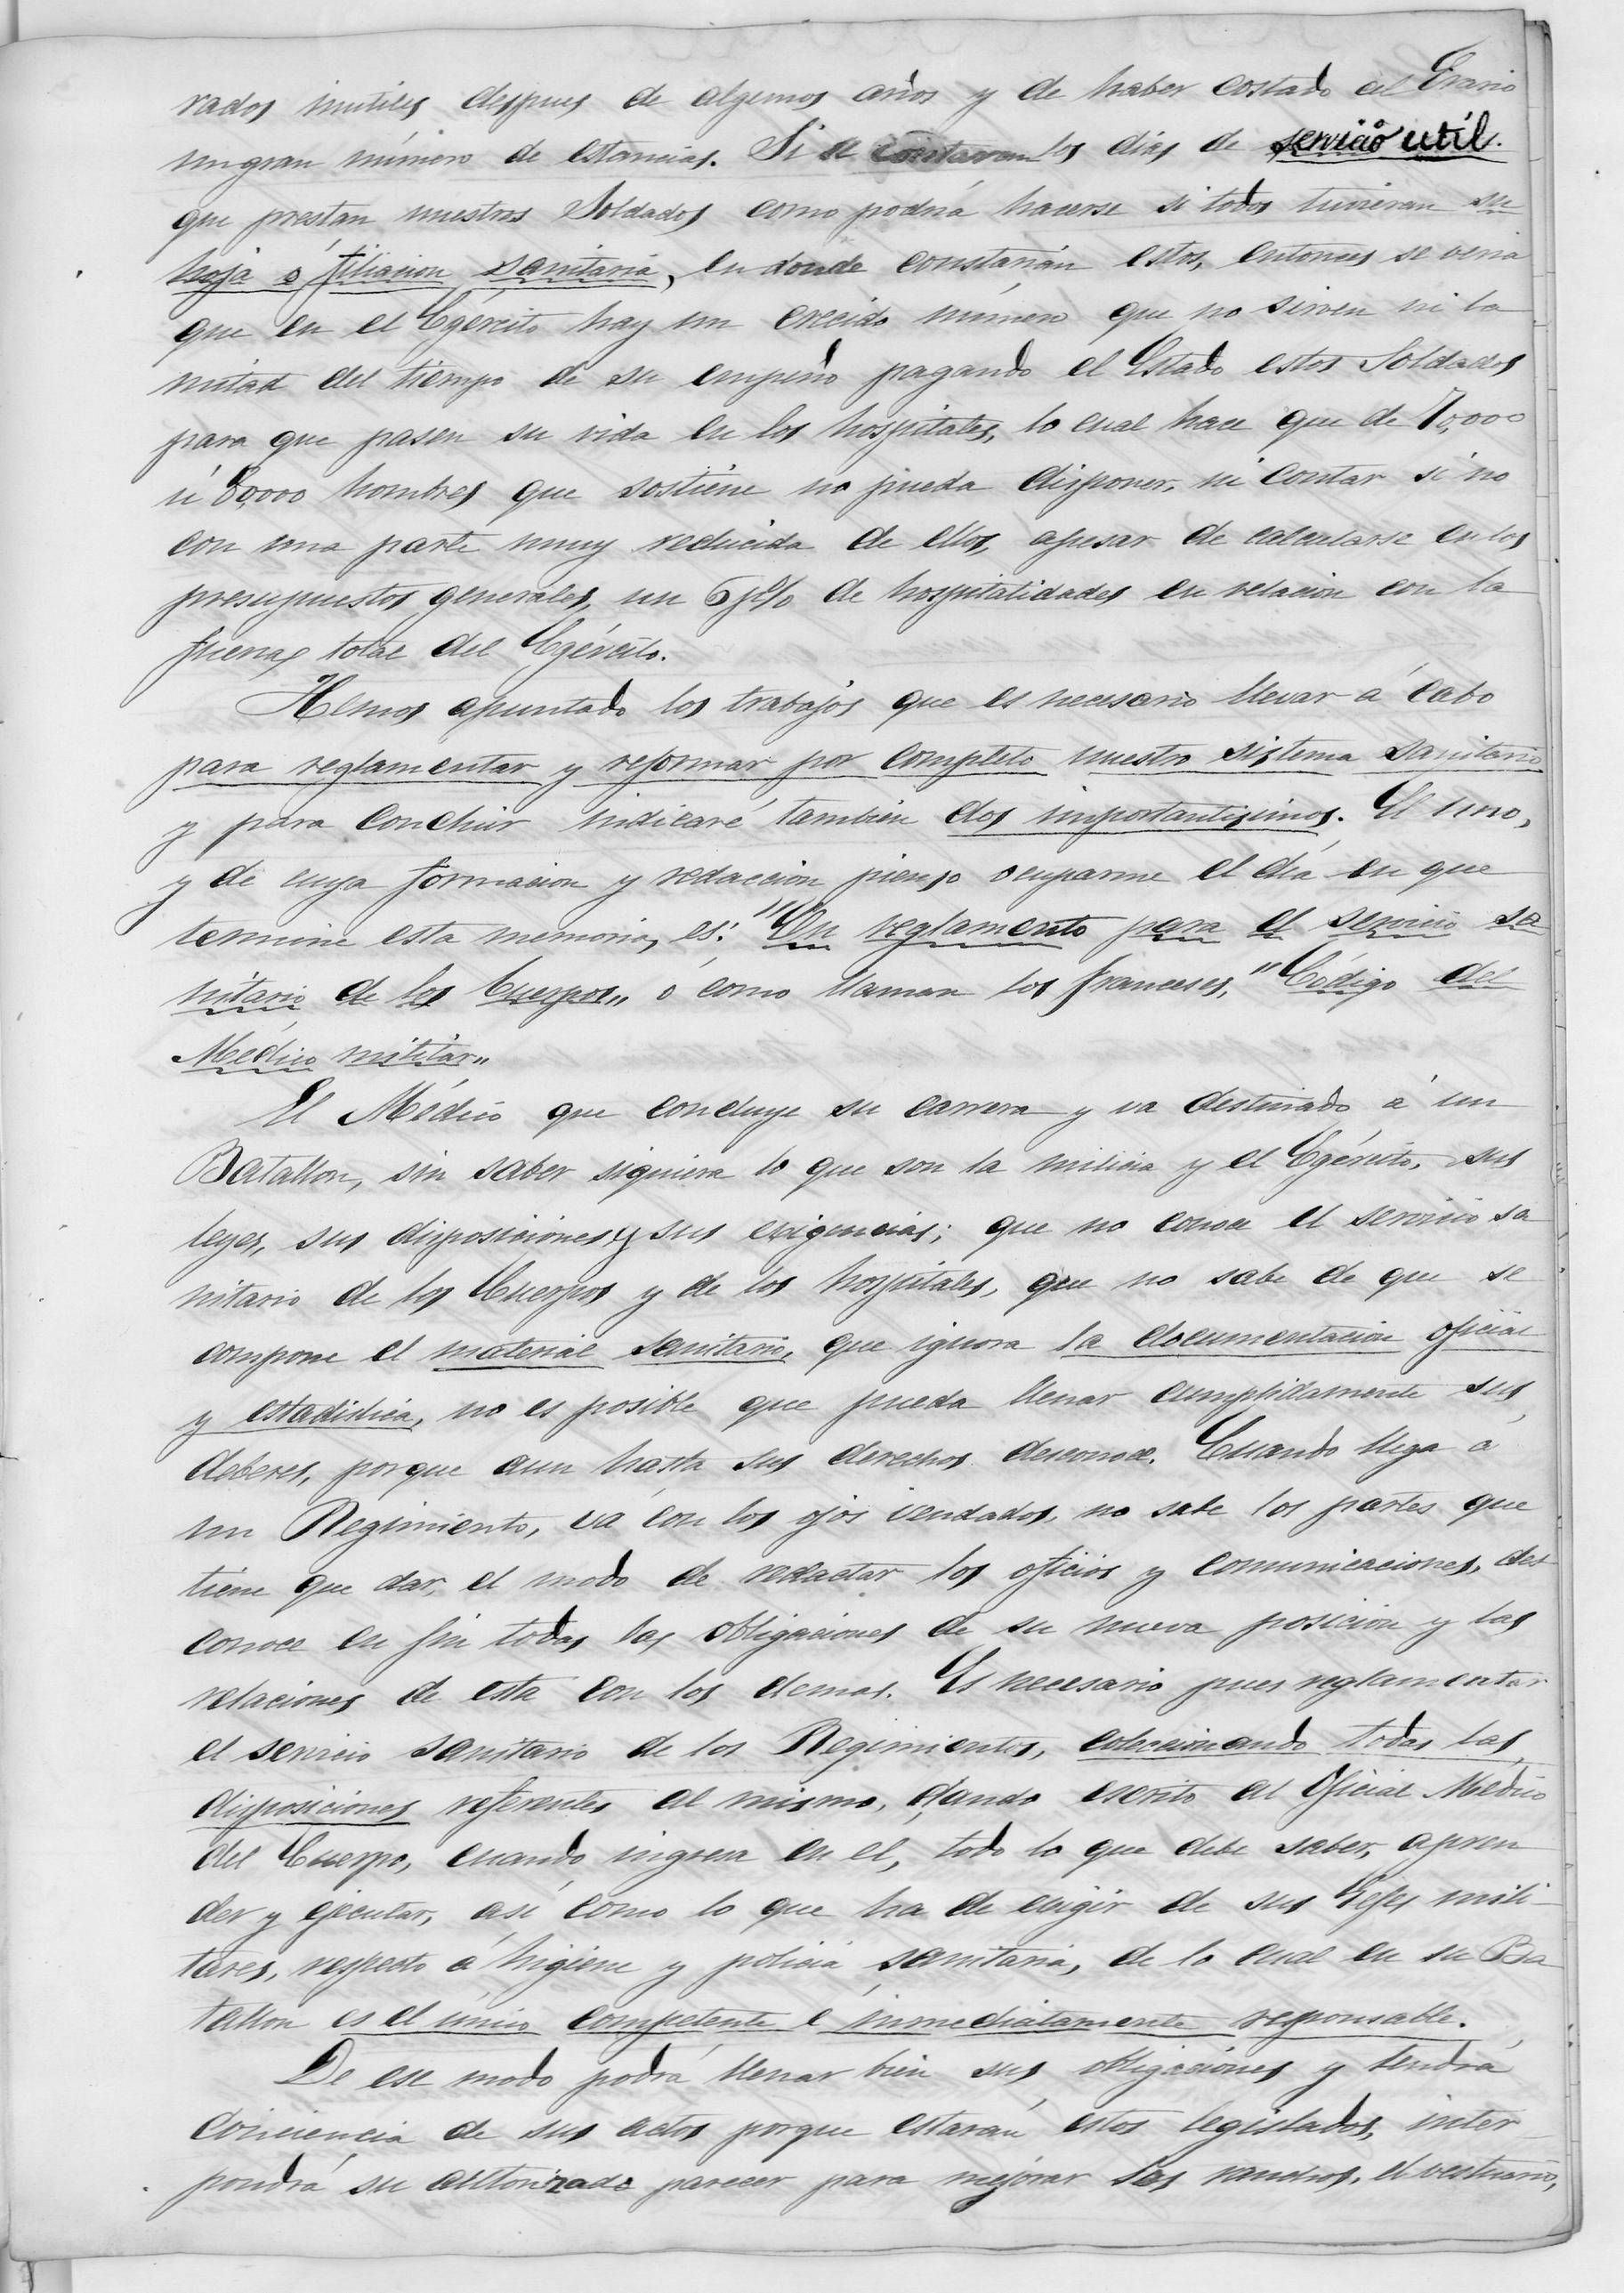 rados inutiles despues de algunos años y de haber costado al Erario
un gran número de estancias. Si se contaran los dias de servicio util.
que prestan nuestros Soldados como podria hacerse si todos tuvieran su
hoja o filiacion sanitaria, en donde constarian estos, entonces se veria
que en el Egército hay un crecido número que no sirven ni la
mitad del tiempo de su empeño pagando el Estado estos Soldados
para que pasen su vida en los hospitales, lo cual hace que de 70,000
ú 80,000 hombres que sostiene no pueda disponer, ni contar si no
con una parte muy reducida de ellos, apesar de calcularse en los
presupuestos generales, un 6 p% de hospitalidades en relacion con la
fuerza total del Egército.
Hemos apuntado los trabajos que es necesario llevar á cabo
para reglamentar y reformar por completo nuestro sistema sanitario
y para concluir indicaré tambien dos importantisimos. El uno,
y de cuya formacion y redaccion pienso ocuparme el dia en que
termine esta memoria, es: "Un reglamento para el servicio sa
nitario de los Cuerpos„ ó como llaman los franceses, "Código del
Médico militar„
El Médico que concluye su carrera y va destinado á un
Batallon, sin saber siquiera lo que son la milicia y el Egército, sus
leyes, sus disposiciones y sus exigencias; que no conoce el servicio sa
nitario de los Cuerpos y de los hospitales, que no sabe de que se
compone el material sanitario, que ignora la documentacion oficial
y estadistica, no es posible que pueda llenar cumplidamente sus
deberes, porque aun hasta sus derechos desconoce. Cuando llega á
un Regimiento, vá con los ojos vendados, no sabe los partes que
tiene que dar, el modo de redactar los oficios y comunicaciones, des
conoce en fin todas las obligaciones de su nueva posicion y las
relaciones de esta con los demas. Es necesario pues reglamentar
el servicio sanitario de los Regimientos, coleccionando todas las
disposiciones referentes al mismo, dando escrito al Oficial Médico
del Cuerpo, cuando ingresa en el, todo lo que debe saber, apren
der y ejecutar, asi como lo que ha de exigir de sus Gefes mili-
tares, respecto á higiene y policia sanitaria, de lo cual en su Ba
tallon es el único competente é inmediatamente responsable.
De ese modo podrá llenar bien sus obligaciones y tendrá
conciencia de sus actos porque estarán estos legislados, inter
pondrá su autorizado parecer para mejorar los ranchos, el vestuario,